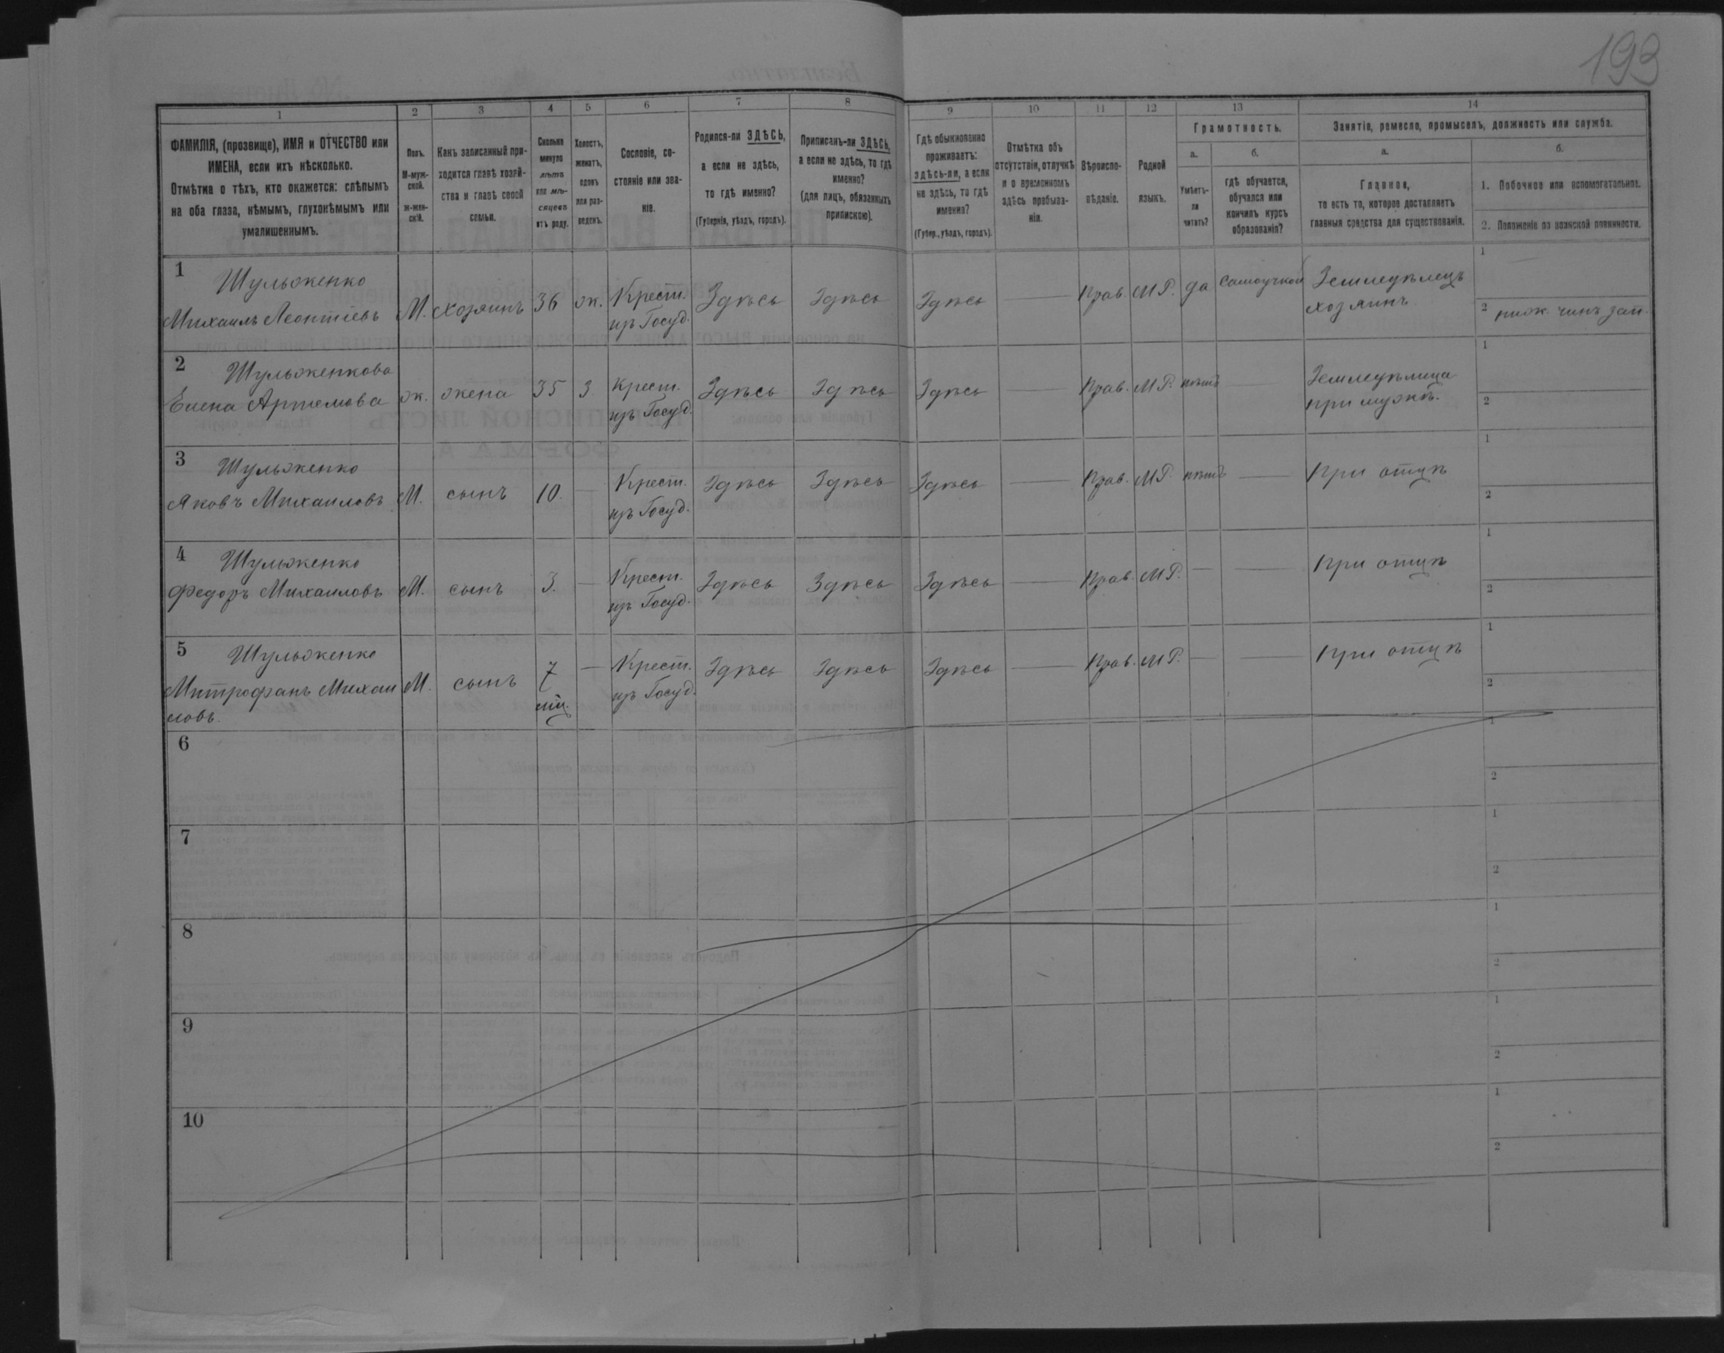 193
1
2
3
4
5
6
7
8
9
10
11
12
13
14
ФАМИЛІЯ, (прозвище), ИМЯ и ОТЧЕСТВО или
ИМЕНА, если ихъ нѣсколько.
Отмѣтка о тѣхъ, кто окажется: слѣпымъ
на оба глаза, нѣмымъ, глухонѣмымъ или
умалишеннымъ.
Полъ.
М-муж-
ской.
ж-жен-
скій.
Какъ записанный при-
ходится главѣ хозяй-
ства и главѣ своей
семьи.
Сколько
минуло
лѣтъ
или мѣ-
сяцевъ
отъ роду.
Холостъ,
женатъ,
вдовъ
или раз-
веденъ.
Сословіе, со-
стояніе или зва-
ніе.
Родился-ли ЗДѢСЬ,
а если не здѣсь,
то гдѣ именно?
(Губернія, уѣздъ, городъ).
Приписанъ-ли ЗДѢСЬ,
а если не здѣсь, то гдѣ
именно?
(для лицъ, обязанныхъ
припискою).
Гдѣ обыкновенно
проживаетъ:
здѣсь-ли, а если
не здѣсь, то гдѣ
именно?
(Губер., уѣздъ, городъ).
Отмѣтка объ
отсутствіи, отлучкѣ
и о временномъ
здѣсь пребыва-
ніи.
Вѣроиспо-
вѣданіе.
Родной
языкъ.
Грамотность.
а.
б.
Умѣетъ-
ли
читать?
гдѣ обучается,
обучался или
кончилъ курсъ
образованія?
Занятіе, ремесло, промыселъ, должность или служба.
а.
б.
Главное,
то есть то, которое доставляетъ
главныя средства для существованія.
1. Побочное или вспомогательное.
2. Положеніе по воинской повинности.
1 Шульженко
Михаилъ Леонтіевъ М. хозяинъ 36 ж. Крест. изъ Госуд. Здѣсь Здѣсь Здѣсь — Прав. М.Р. да самоучкой Земледѣлецъ хозяинъ 1 — 2 ниж. чинъ зап.
2 Шульженкова
Елена Артемова ж. жена 35 З Крест. изъ Госуд. Здѣсь Здѣсь Здѣсь — Прав. М.Р. нѣтъ — Земледѣлица при мужѣ. 1 2
3 Шульженко
Яковъ Михаиловъ М. сынъ 10. — Крест. изъ Госуд. Здѣсь Здѣсь Здѣсь — Прав. М.Р. нѣтъ — При отцѣ 1 2
4 Шульженко
Федоръ Михаиловъ М. сынъ 3. — Крест. изъ Госуд. Здѣсь Здѣсь Здѣсь — Прав. М.Р. — — При отцѣ 1 2
5 Шульженко
Митрофанъ Михаи
ловъ. М. сынъ 7 — Крест. изъ Госуд. Здѣсь Здѣсь Здѣсь — Прав. М.Р. — — При отцѣ 1 2
6 1 2
7 1 2
8 1 2
9 1 2
10 1 2